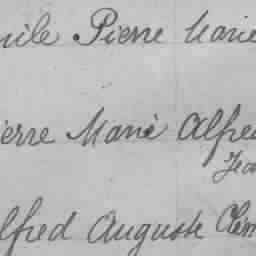 mile Pierre Marie
ierre Marie Alfre
Jea
lfred Auguste Clém